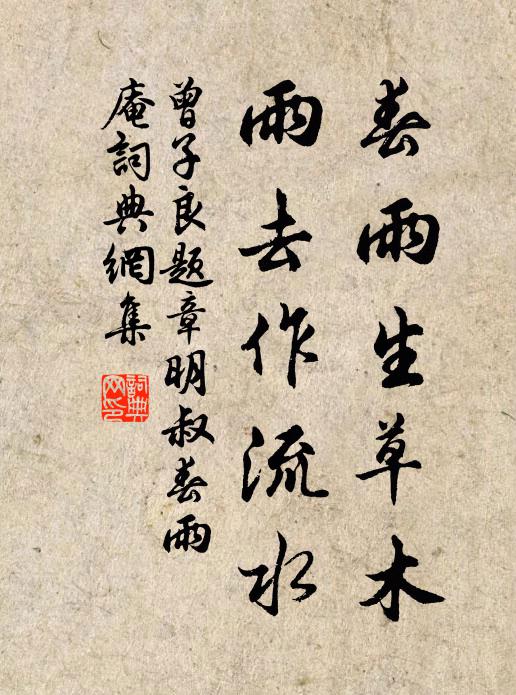 春雨生草木
雨去作流水
曾子良题章明叔春雨
庵詞典網集
詞典网印